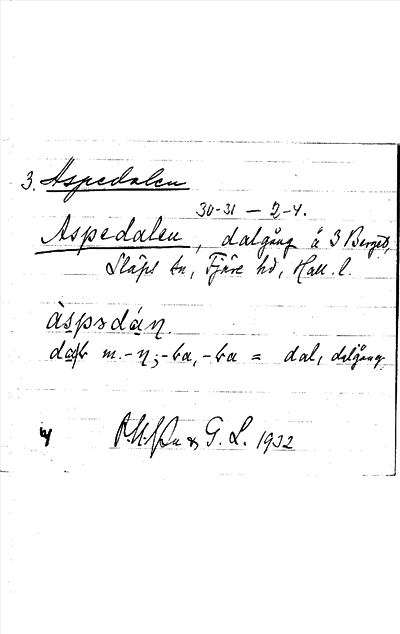 3. Aspedalen
30-31 — 2-4.
Aspedalen, dalgång å 3 Berget,
Släps sn, Fjäre hd, Hall. l.
àspədáɳ.
m. -ɳ; -ra, -ra = dal, dalgång.
& G. L. 1932